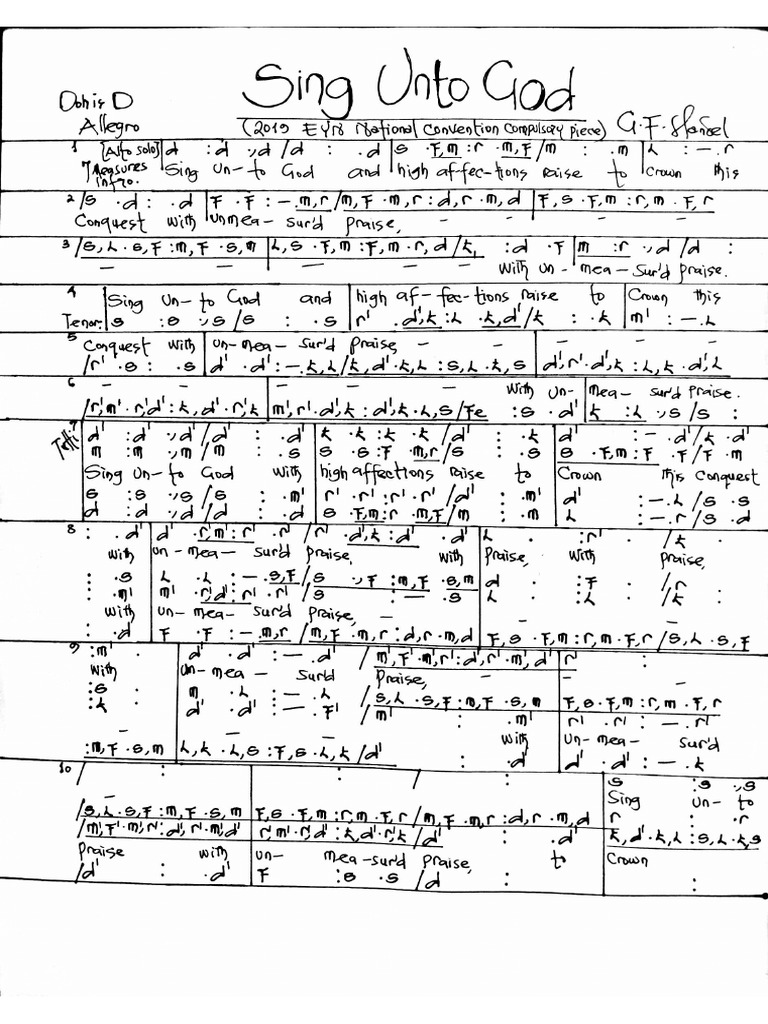 Sing Unto God
Doh is D
Allegro
(2019 EYN National Convention Compulsory piece) G.F. Handel
1 [Alto solo] d : d :,d / d : . d | s . f,m : r . m,f / m : . m | l : - . r
7 Measures intro. Sing Un-to God and high af-fec-tions raise to Crown this
2 / s . d : . d | f . f : - . m,r / m,f . m,r : d,r . m,d | f,s . f,m : r,m . f,r
Conquest with unmea- sur'd Praise, - -
3 / s,l . s,f : m,f . s,m | l,s . f,m : f,m . r,d / t, : d . f | m : r .,d / d :
- - - - - with un- mea- sur'd praise.
4 Sing Un-to God and high af-fec-tions raise to Crown this
Tenor: s : s .,s / s : . s | r' . d',t : l . t,d' / t : . t | m' : - . l
5 Conquest with un-mea- sur'd Praise, - - -
/ r' . s : . s | d' . d' : - . t,l / t,d' . t,l : s,l . t,s | d',r' . d',t : l,t . d',l
6 - - - - with un- mea- sur'd praise.
/ r',m' . r',d' : t,d' . r',t | m',r' . d',t : d',t . l,s / fe : s . d' | t : l .,s / s :
7 Tutti d' : d' .,d' / d' : . d' | t . t : t . t / d' : . t | d' : - . d' / t . d'
m : m .,m / m : . s | s . s : f . m,r / s : . s | s . f,m : f . f / f . m
Sing Un-to God with high affections raise to Crown this Conquest
s : s .,s / s : . m' | r' . r' : r' . r' / d' : . m' | d' : - . l / s . s
d : d .,d / d : . d | s . f,m : r . m,f / m : . m | l : - . r / s . d
8 : . d' | d' . r',m' : r' . r' / r' . d',t : d' . d' | l . : r' . / t .
with un-mea- sur'd praise, with Praise, with Praise,
: . s | l . l : - . s,f / s .,f : m,f . s,m | d . : f . / r .
: . m' | m' . r',d' : r' . r' / s : - . s | l . : l . / t .
with un-mea- sur'd praise, - -
: . d | f . f : - . m,r / m,f . m,r : d,r . m,d | f,s . f,m : r,m . f,r / s,l . s,f
9 : m' | d' . d' : - . d' / m',f' . m',r' : d',r' . m',d' | r' :
with un-mea- sur'd Praise, - - -
: s | m . l : - . l / s,l . s,f : m,f . s,m | f,s . f,m : r,m . f,r
: t | d' . d' : - . f' / m' : . m' | r' . r' : - . r'
- - - with un-mea- sur'd
: m,f . s,m | l,t . l,s : f,s . l,t / d' : . d' | d' . d' : - . t
10 / : | : / : | s : s .,s
- - - - Sing un-to
/ s,l . s,f : m,f . s,m | f,s . f,m : r,m . f,r / m,f . m,r : d,r . m,d | r : . r
/ m',f' . m',r' : d',r' . m',d' | r',m' . r',d' : t,d' . r',t / d' : . d' | t,d' . t,l : s,l . t,s
Praise with un- mea-sur'd praise, to Crown
/ d' : . d' | f : s . s / d : | :